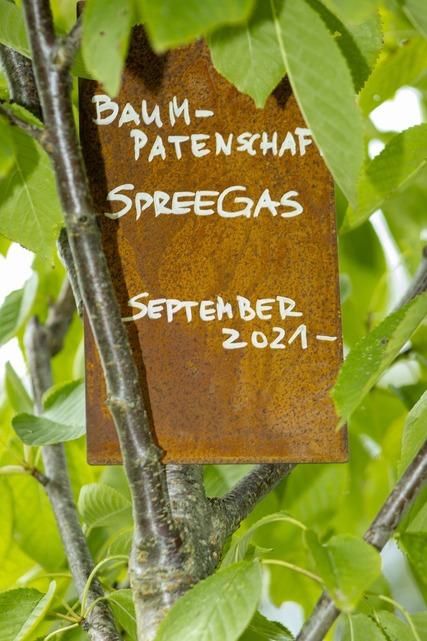 BAUM-
PATENSCHAF
SPREEGAS
SEPTEMBER
2021-